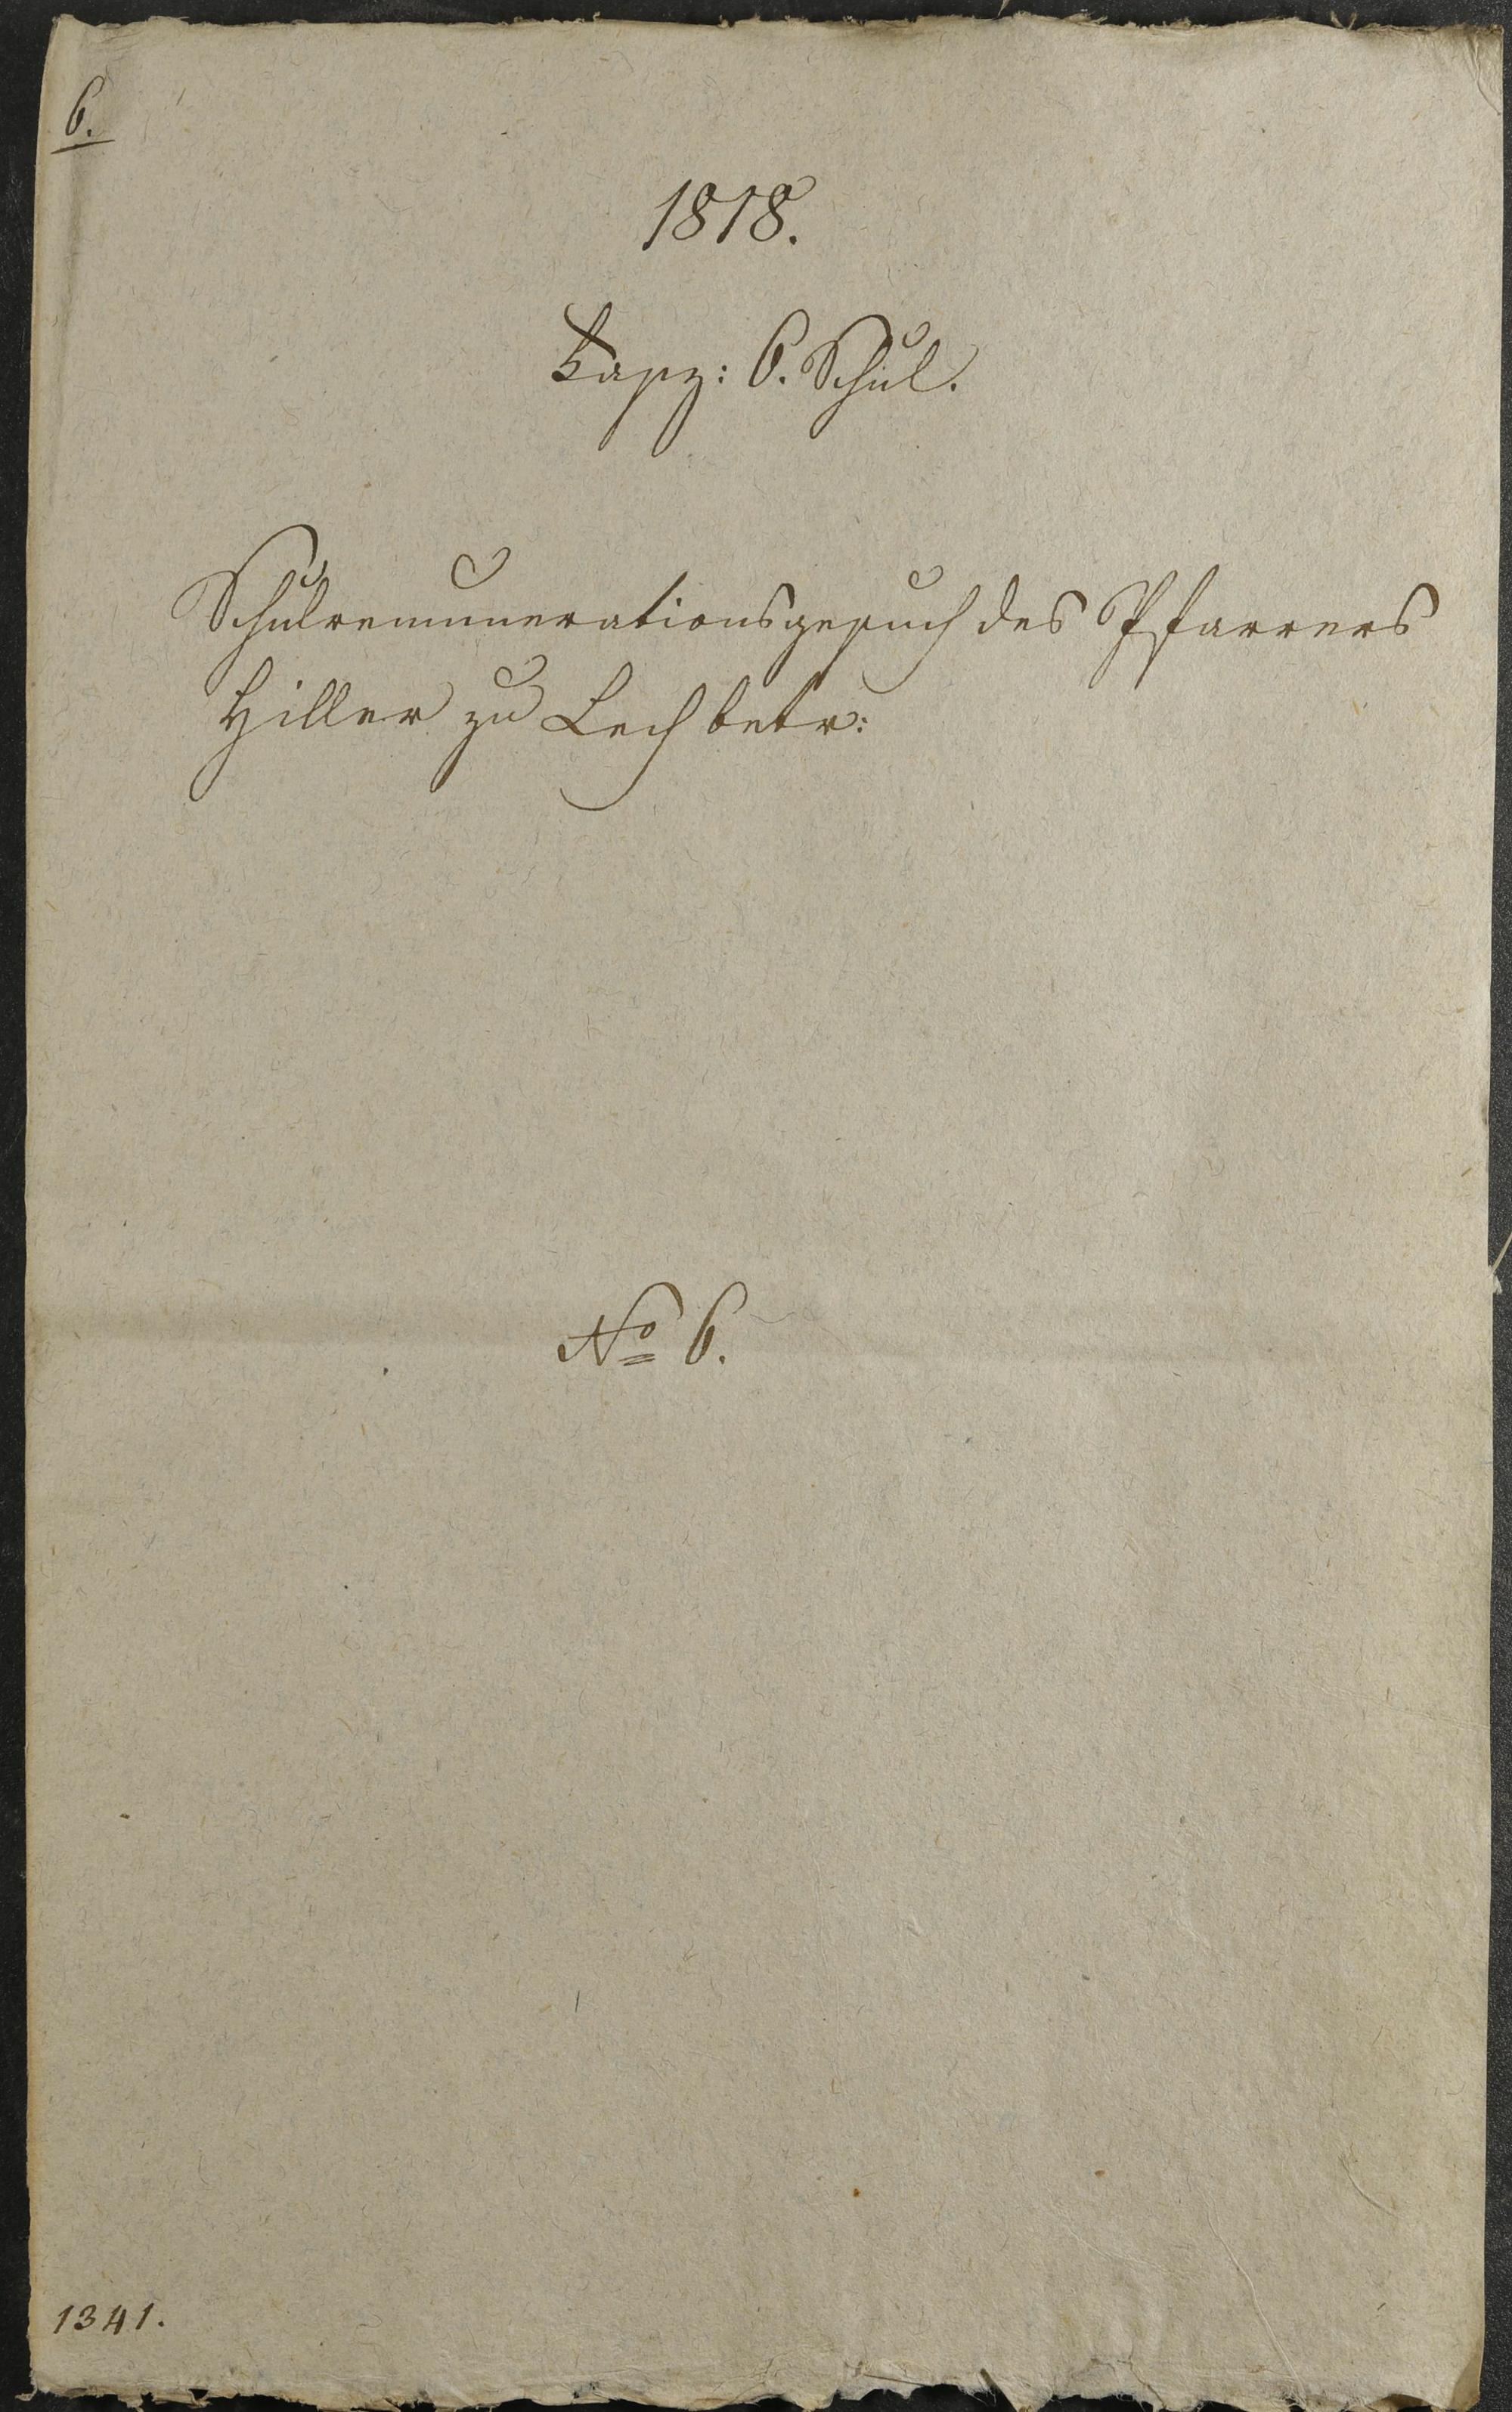 6.
1818.
Fasz: 6. Schul.
Schulremunerationsgesuch des Pfarrers
Hiller zu Lech betr:
No 6.
1341.